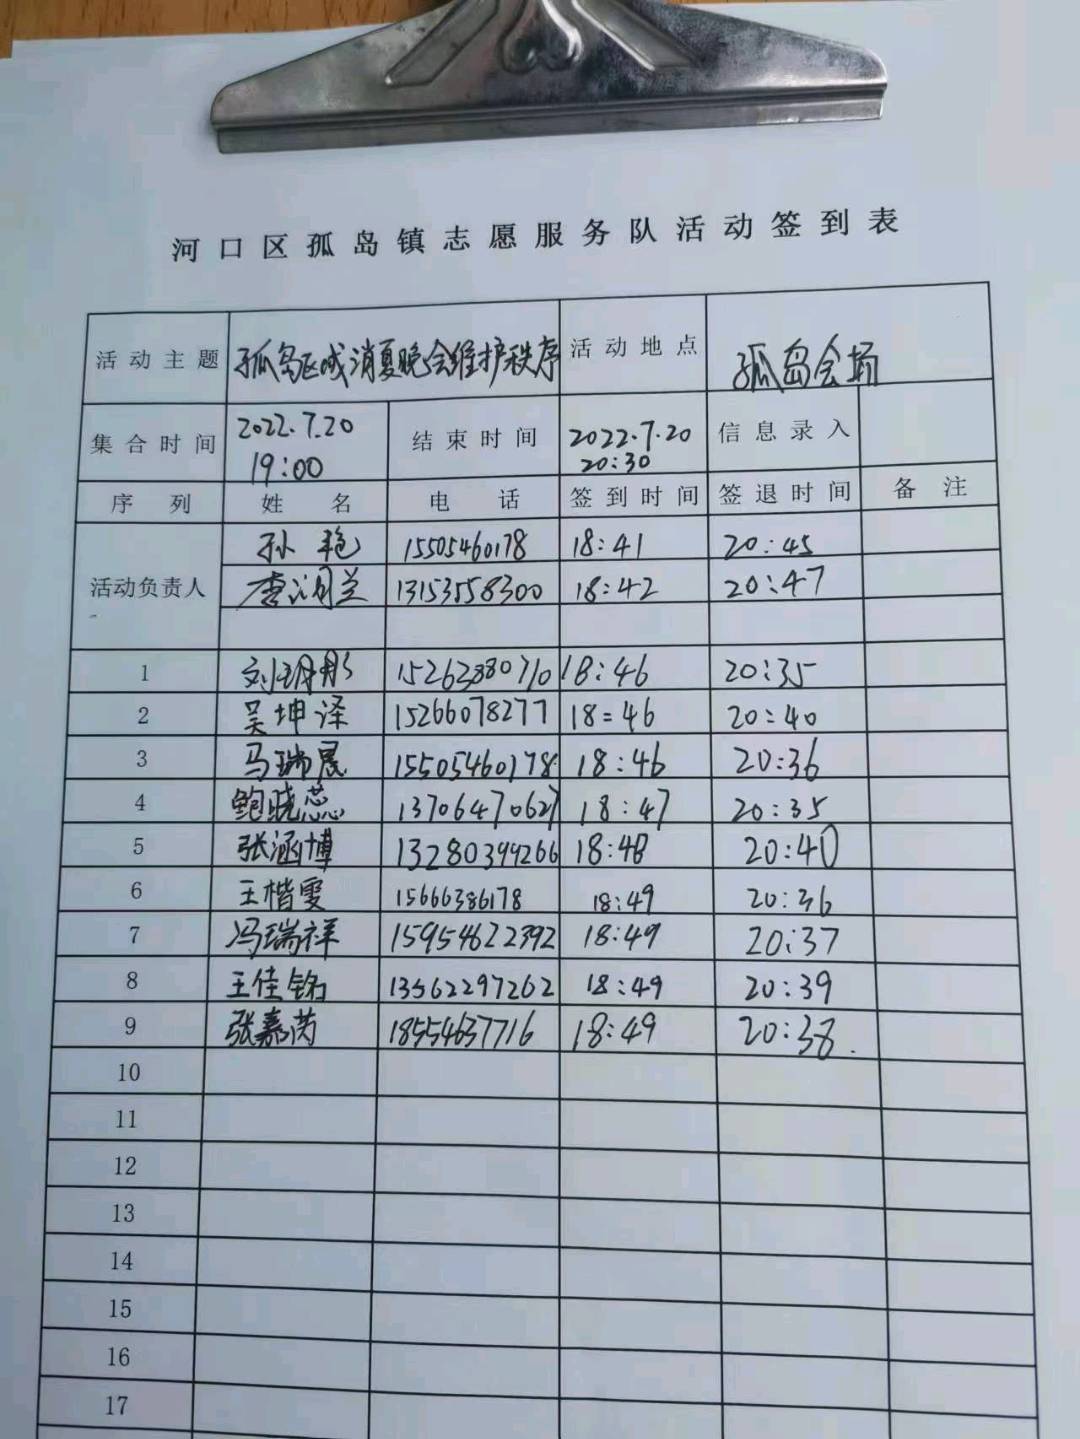 河口区孤岛镇志愿服务队活动签到表
活动主题 孤岛区域消夏晚会维护秩序 活动地点 孤岛会场
集合时间 2022.7.20 19:00 结束时间 2022.7.20 20:30 信息录入
序列 姓名 电话 签到时间 签退时间 备注
活动负责人
孙艳 15505460178 18:41 20:45
李润兰 13153558300 18:42 20:47
1 刘玥彤 15263880710 18:46 20:35
2 吴坤泽 15266078277 18:46 20:40
3 马瑞晨 15505460178 18:46 20:36
4 鲍晓蕊 13706470627 18:47 20:35
5 张涵博 13280399266 18:48 20:40
6 王楷雯 15666386178 18:49 20:36
7 冯瑞祥 15954622392 18:49 20:37
8 王佳铭 13562297262 18:49 20:39
9 张嘉芮 18554637716 18:49 20:38.
10
11
12
13
14
15
16
17